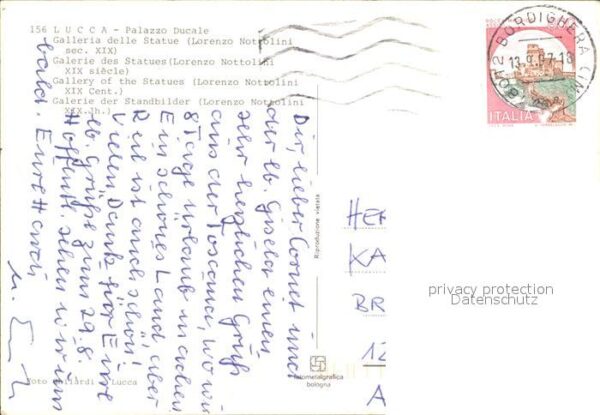 156 LUCCA - Palazzo Ducale
Galleria delle Statue (Lorenzo Nottolini
sec. XIX)
Galerie des Statues(Lorenzo Nottolini
XIX siècle)
Gallery of the Statues (Lorenzo Nottolini
XIX Cent.)
Galerie der Standbilder (Lorenzo Nottolini
XIX.Jh.)
Dir, lieber Cornel und
der lb. Gisela einen
sehr herzlichen Gruß
aus der Toscana, wo wir
8 Tage Urlaub machen
Ein schönes Land, aber
Reit ist auch schön!
Vielen Dank für Eure
lb. Grüße zum 29.8.
Hoffentl. sehen wir uns
bald. Eure
u.
Foto Ghilardi - Lucca
Riproduzione vietata
fotometalgrafica
bologna
BORDIGHERA (IM)
13.9.87-18
ITALIA
HE
KA
BR
12
A
privacy protection
Datenschutz